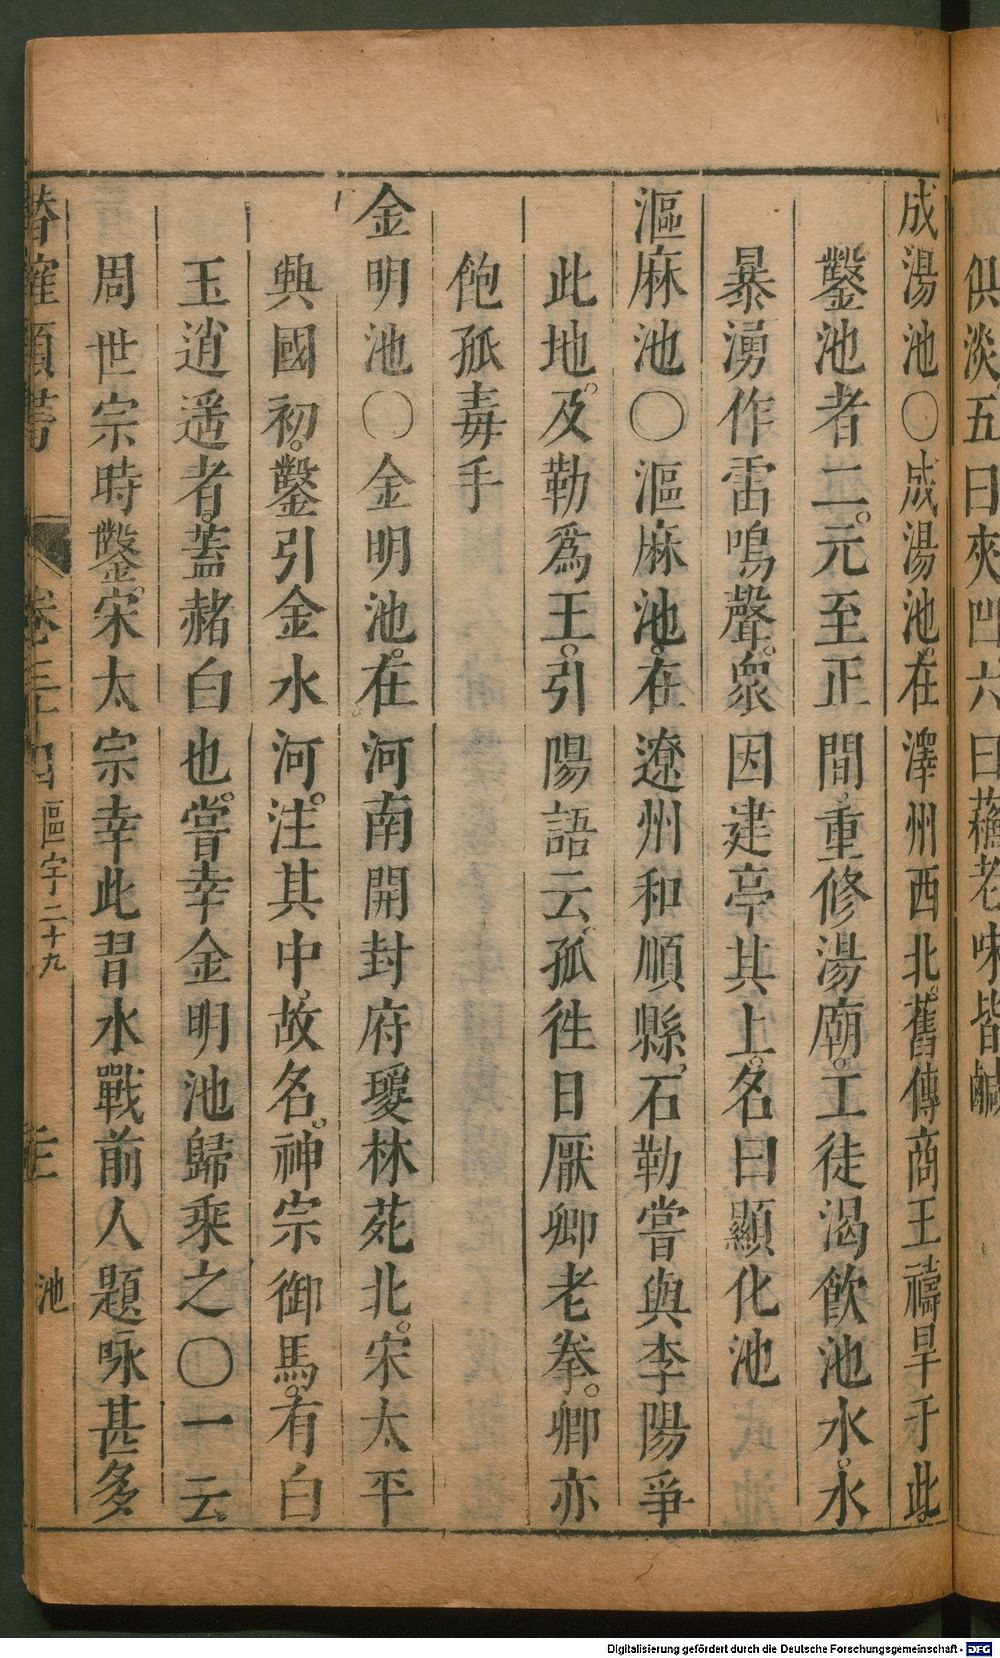 供淡五曰夾凹六曰蘸老味皆鹹
成湯池〇成湯池。在澤州西北。舊傳商王禱旱于此。
鑿池者二。元至正間。重修湯廟。工徒渴飲池水。水
暴湧作雷鳴聲。衆因建亭其上。名曰顯化池
漚麻池〇漚麻池。在遼州和順縣。石勒嘗與李陽爭
此地。及勒爲王。引陽語云。孤徃日厭卿老拳。卿亦
飽孤毒手
金明池〇金明池。在河南開封府瓊林苑北。宋太平
興國初。鑿引金水河。注其中。故名。神宗御馬。有白
玉逍遥者。蓋赭白也。嘗幸金明池歸乘之〇一云。
周世宗時鑿。宋太宗幸此習水戰前人題咏甚多
卷三十四 區字二十九 池
Digitalisierung gefördert durch die Deutsche Forschungsgemeinschaft - DFG